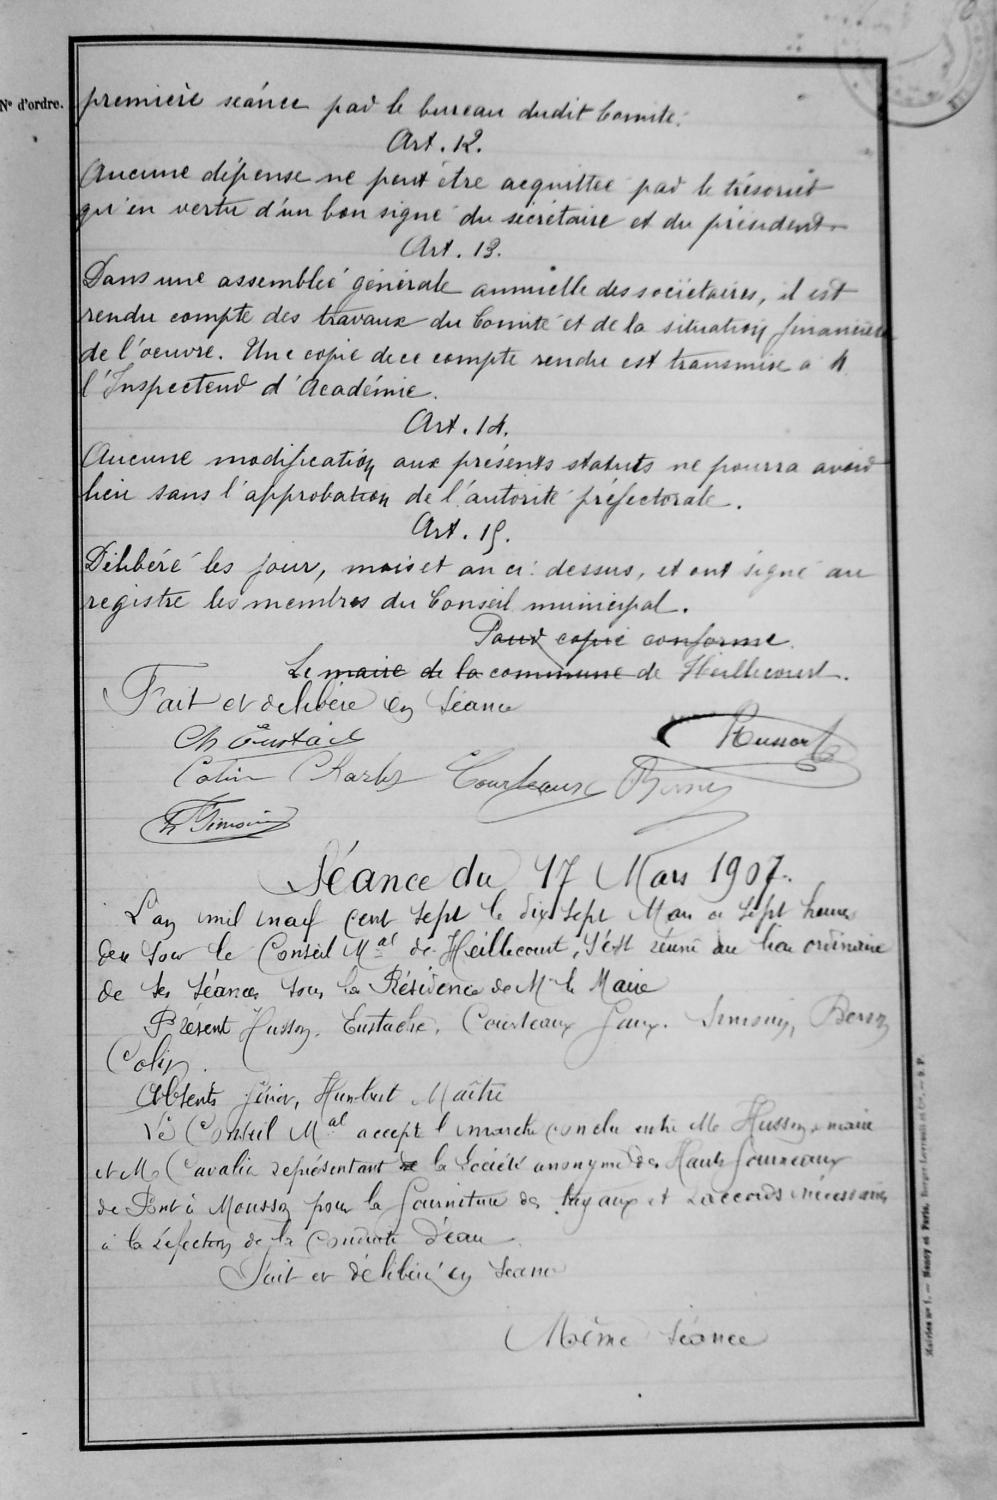 N° d'ordre.
première séance par le bureau dudit Comité.
Art. 12.
Aucune dépense ne peut être acquittée par le trésorier
qu'en vertu d'un bon signé du secrétaire et du président.
Art. 13.
Dans une assemblée générale annuelle des sociétaires, il est
rendu compte des travaux du Comité et de la situation financière
de l'oeuvre. Une copie de ce compte rendu est transmise à M
l'Inspecteur d'Académie.
Art. 14.
Aucune modification aux présents statuts ne pourra avoir
lieu sans l'approbation de l'autorité préfectorale.
Art. 15.
Délibéré les jour, mois et an ci-dessus, et ont signé au
registre les membres du Conseil municipal.
Pour copie conforme.
Le maire de la commune de Heillecourt.
Fait et délibéré en Séance
Ch Eustache Husson
Colin Charles Courteaux Berson
Simonin
Séance du 17 Mars 1907.
L'an mil neuf cent sept le dix sept Mars à sept heures
du soir le Conseil Mal de Heillecourt, s'est réuni au lieu ordinaire
de ses séances sous la Présidence de M le Maire
Présent Husson, Eustache, Courteaux Simonin, Berson
Colin.
Absents Humbert Maître
Le Conseil Mal accepte le marché conclu entre M Husson maire
et M Cavalier représentant de la Société anonyme des Hauts fourneaux
de Pont à Mousson pour la fourniture des tuyaux et raccords nécessaires
à la réfection de la conduite d'eau
Fait et délibéré en Séance
Même séance
Mairies n° 1. — Nancy et Paris, Berger-Levrault et Cie. — S. P.